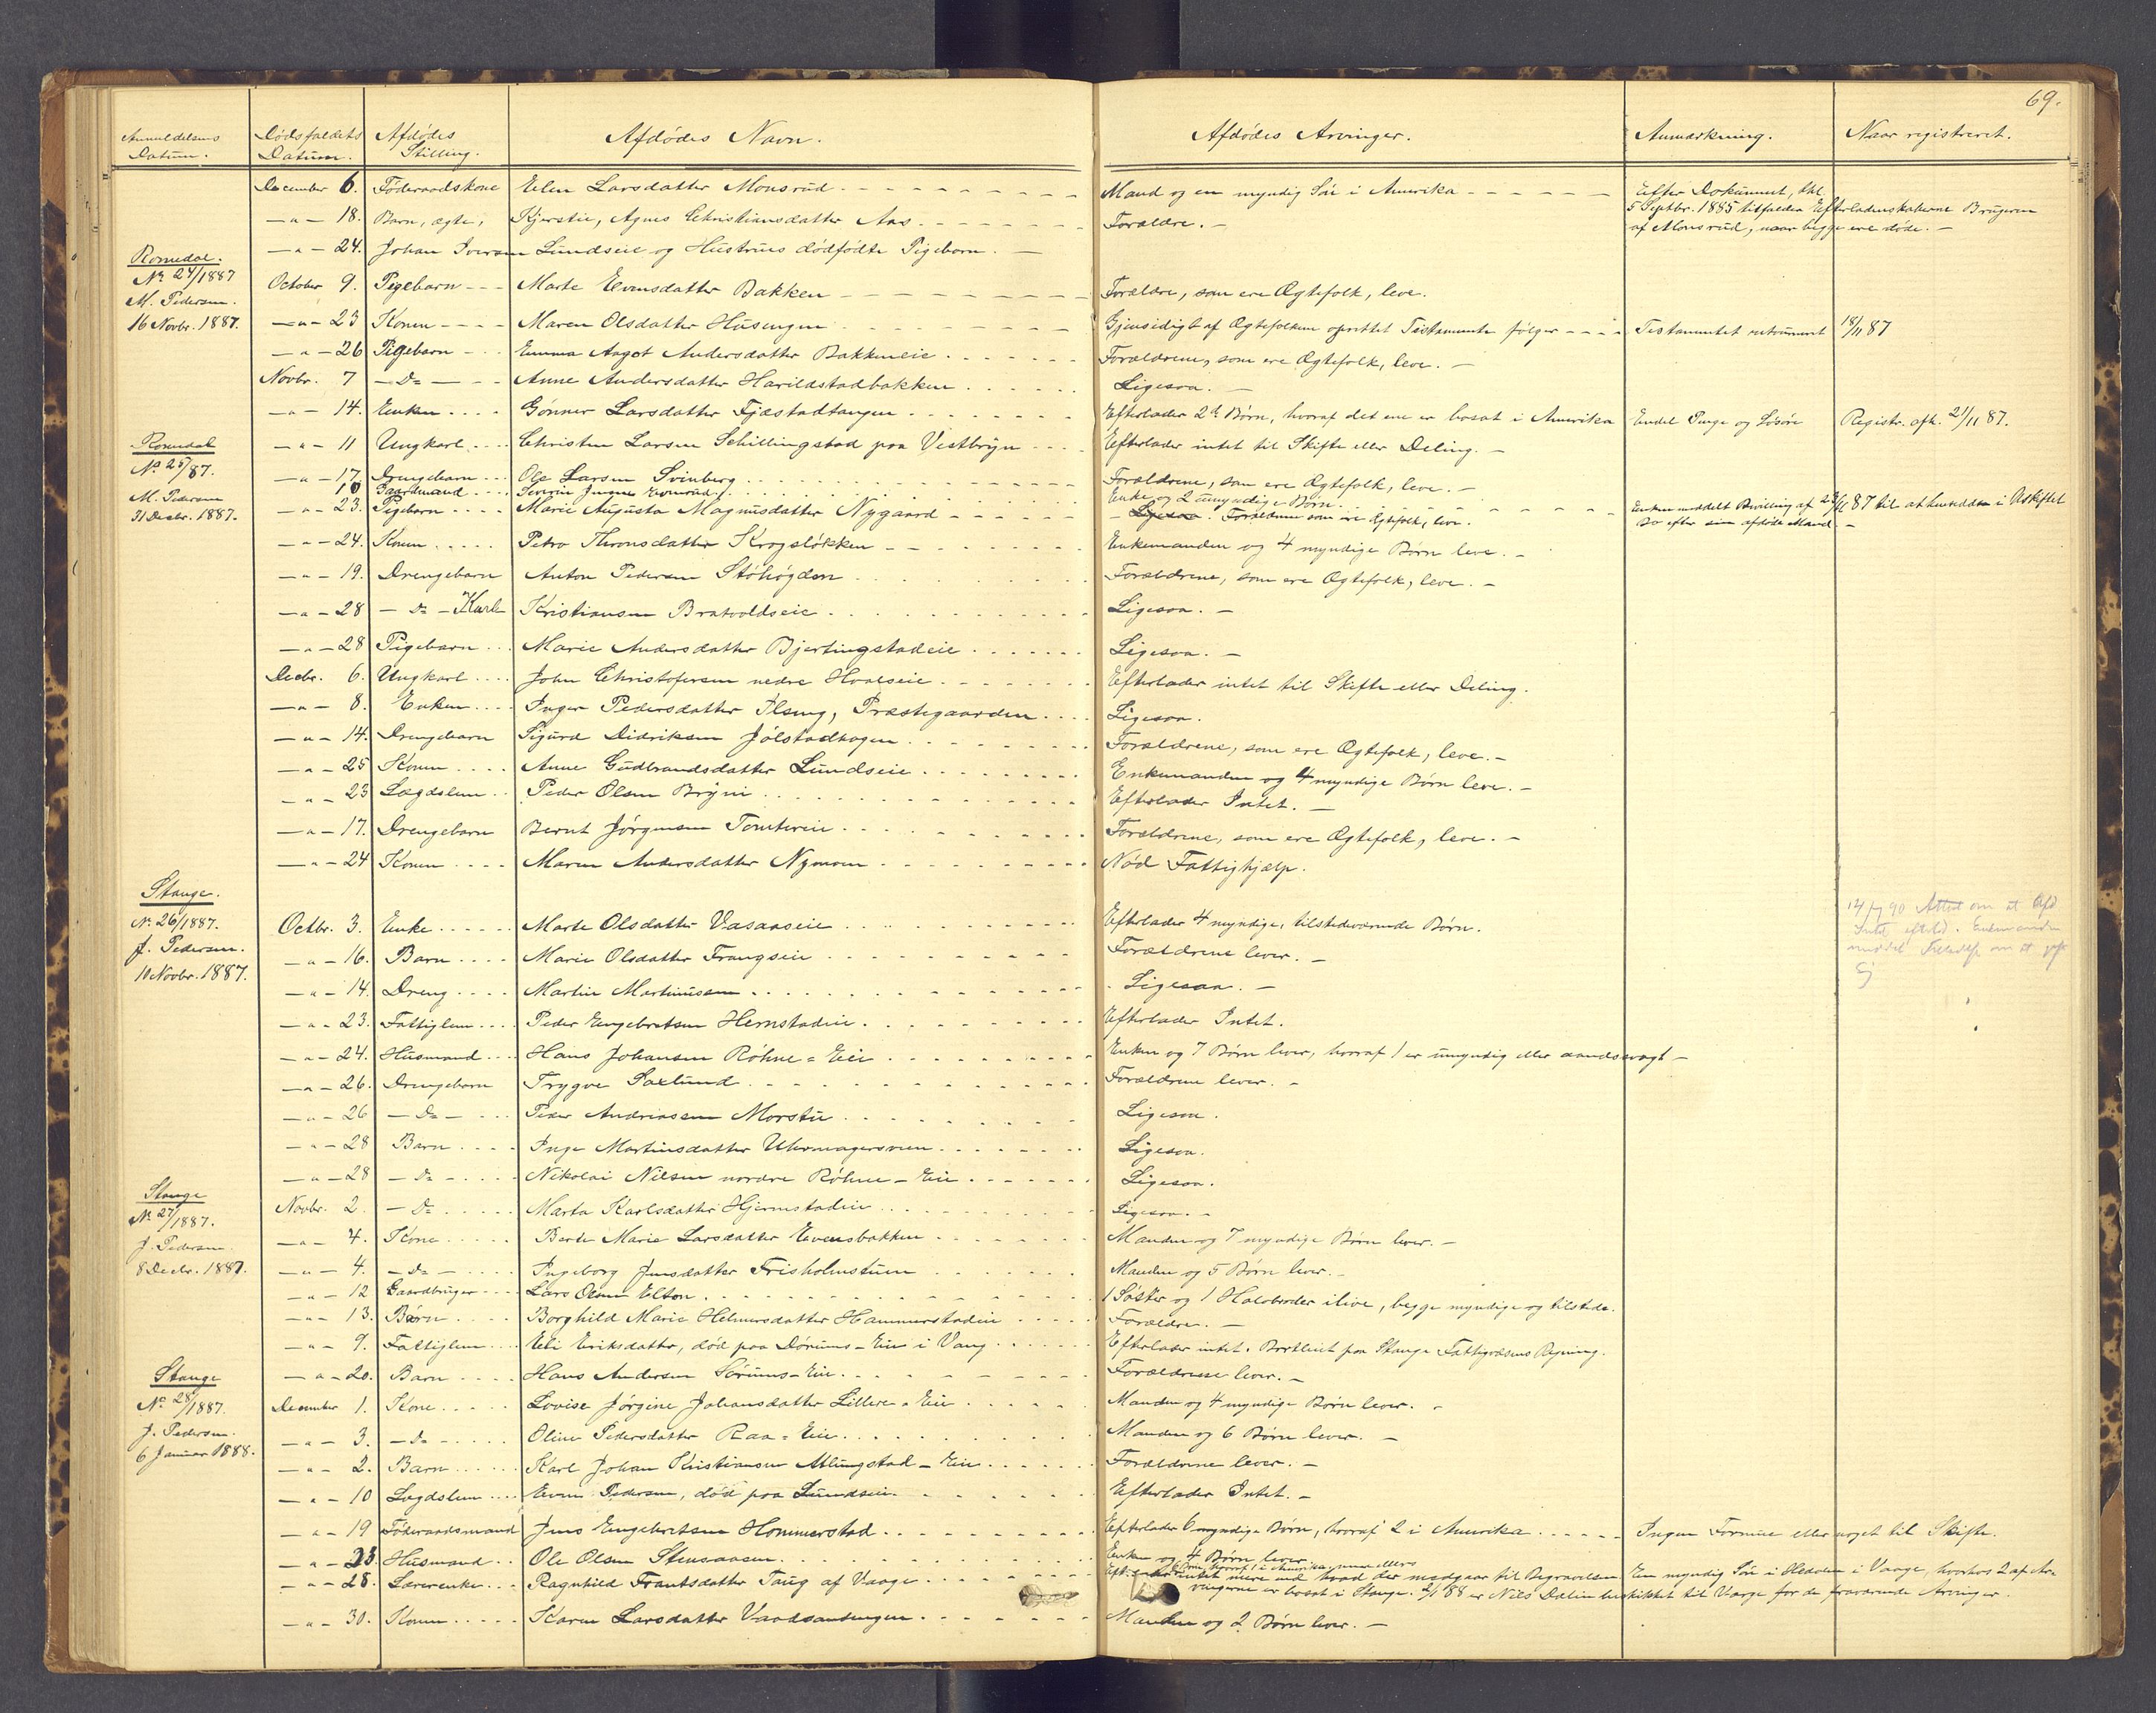 69.
Anmeldelsens Datum. Dødsfaldets Datum. Afdødes Stilling. Afdødes Navn. Afdødes Arvinger. Anmærkning. Naar registreret.
December 6. Föderaadskone Elen Larsdatter Monsrud Mand og en myndig Sön i Amerika Efter Dokument, dat. 5 Septbr. 1885 tilfalder Efterladenskaberne Brugeren af Monsrud, naar begge ere döde. —
— " — 18. Barn, ægte, Kjerstie, Agnes Christiansdatter Aas Forældre. —
— " — 24. Johan Iversen Lundseie og Hustrues dödfödte Pigebarn. —
Romedal. No 24/1887 M. Pedersen. 16 Novbr. 1887.
October 9. Pigebarn Marte Evensdatter Bakken Forældre, som ere Ægtefolk, leve.
— " — 23 Konen Maren Olsdatter Husengen Gjensidigt af Ægtefolkene oprettet Testamente fölger Testamentet returneret 18/11 87
— " — 26 Pigebarn Emma Aagot Andersdatter Bakkeneie Forældrene, som ere Ægtefolk, leve. —
Novbr. 7 — Do — Anne Andersdatter Harildstadbakken Ligesaa. —
— " — 14. Enken Gönner Larsdatter Fjæstadtangen Efterlader 2de Börn, hvoraf det ene er bosat i Amerika Endel Penge og Lösöre Registr. afh. 21/11 87.
Romedal No 25/87. M. Pedersen 31 Decbr. 1887.
— " — 11 Ungkarl Christen Larsen Schillingstad paa Vestbryn Efterlader intet til Skifte eller Deling. —
— " — 17. Drengebarn Ole Larsen Svinberg Forældrene, som ere Ægtefolk, leve. —
10 Gaardmand Severin Jensen Enke og 2 umyndige Börn. Enken meddelt Bevilling af 23/12 87 til at hensidde i Uskiftet Bo efter sin afdöde Mand. —
— " — 23. Pigebarn Marie Augusta Magnusdatter Nygaard Ligesaa. Forældrene som ere Ægtefolk, leve.
— " — 24. Konen Petra Thronsdatter Krogslökken Enkemanden og 4 myndige Börn leve. —
— " — 19. Drengebarn Anton Pedersen Stöhögden Forældrene, som ere Ægtefolk, leve. —
— " — 28 — Do — Karl Kristiansen Bratvoldseie Ligesaa. —
— " — 28 Pigebarn Marie Andersdatter Bjertingstadeie Ligesaa. —
Decbr. 6. Ungkarl John Christofersen nedre Hvalseie Efterlader intet til Skifte eller Deling.
— " — 8. Enken Inger Pedersdatter Ilseng, Præstegaarden Ligesaa.
— " — 14. Drengebarn Sigurd Didriksen Jölstadhagen Forældrene, som ere Ægtefolk, leve. —
— " — 25 Konen Anne Gudbrandsdatter Lundseie Enkemanden og 4 myndige Börn leve. —
— " — 23 Lægdslem Peder Olsen Bryni Efterlader Intet. —
— " — 17. Drengebarn Bernt Jörgensen Tomtereie Forældrene, som ere Ægtefolk, leve. —
— " — 24 Konen Maren Andersdatter Nymoen Nöd Fattighjælp.
Stange. No 26/1887. J. Pedersen. 10 Novbr. 1887.
Octbr. 3. Enke Marte Olsdatter Vasaaseie Efterlader 4 myndige, tilstedeværende Börn. 90 Attest om at Afd. Intet efterlod. Enkemanden meddelt Tilladelse om at
— " — 16. Barn Marie Olsdatter Frangseie Forældrene lever. —
— " — 14. Dreng Martin Martinussen Ligesaa. —
— " — 23. Fattiglem Peder Engebretsen Hernstadeie Efterlader Intet.
— " — 24. Husmand Hans Johansen Röhne = Eie Enken og 7 Börn lever, hvoraf 1 er umyndig eller aandssvagt —
— " — 26. Drengebarn Trygve Saxlund Forældrene lever. —
— " — 26 — Do — Peder Andreassen Morstu Ligesaa.
— " — 28 Barn Inge Martinsdatter Uhrmagersveen Ligesaa.
— " — 28 — Do — Nikolai Nilsen nordre Röhne - Eie Ligesaa.
Stange No 27/1887. J. Pedersen. 8 Decbr. 1887.
Novbr. 2. — Do Marta Karlsdatter Hjermstadeie Ligesaa. —
— " — 4. Kone Berte Marie Larsdatter Evensbakken Manden og 7 myndige Börn lever. —
— " — 4. — Do — Ingeborg Jensdatter Frisholmstuen Manden og 5 Börn lever. —
— " — 12 Gaardbruger Lars Olsen Elton 1 Söster og 1 Halvbroder ilive, begge myndige og tilstede.
— " — 13. Barn Borghild Marie Helmersdatter Hammerstadeie Forældre. —
— " — 9. Fattiglem Eli Eriksdatter, död paa Dörums - Eie i Vang Efterlader intet. Bortleiet paa Stange Fattigvæsens Regning.
Stange No 28/1887. J. Pedersen. 6 Januar 1888.
— " — 20. Barn Hans Andersen Sörums - Eie Forældrene lever. —
December 1. Kone Lovise Jörgine Johansdatter Lillere = Eie Manden og 4 myndige Börn lever. —
— " — 3. — Do — Oline Pedersdatter Raa = Eie Manden og 6 Börn lever. —
— " — 2. Barn Karl Johan Kristiansen Atlungstad - Eie Forældrene lever. —
— " — 10 Lægdslem Even Pedersen, död paa Lundseie Efterlader Intet. —
— " — 19 Föderaadsmand Jens Engebretsen Hommerstad Efterlader 6 myndige Börn, hvoraf 2 i Amerika Ingen Formue eller noget til Skifte.
— " — 23. Husmand Ole Olsen Stensaasen Enken og 4 Börn lever.
— " — 28. Lærerenke Ragnhild Frantsdatter Taug af Vaage intet mere end hvad der medgaar til Begravelsen En myndig Sön i Hedalen i Vaage, hvorhos 2 af Arvingerne er bosat i Stange. 2/1 88 er Nils Dalen beskikket til Værge for de fraværende Arvinger.
— " — 30. Konen Karen Larsdatter Vaadsandengen Manden og 2 Börn lever. —